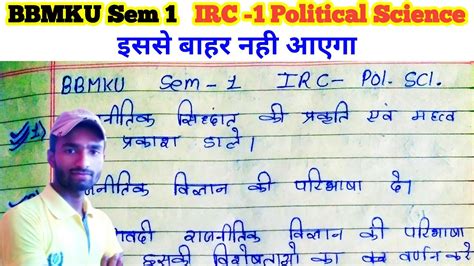 BBMKU Sem 1 IRC -1 Political Science
इससे बाहर नही आएगा
BBMKU Sem - 1 IRC- Pol. SCI.
1) नीतिक सिद्धांत की प्रकृति एवं महत्व
प्रकाश डाले।
जनीतिक विज्ञान की परिभाषा दे।
राजनीतिक विज्ञान की परिभाषा
इसकी विशेषताओ का वर्णन करे